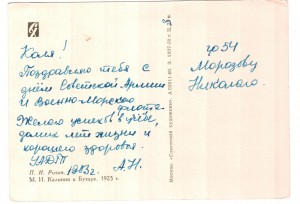 Коля!
Поздравляю тебя с
днём Советской Армии
и Военно-Морского
флота.
Желаю успехов в учёбе,
долгих лет жизни и
хорошего здоровья.
1983г. А.Н.
М. И. Калинин в Бухаре. 1925 г.
гр 54
Морозову
Николаю.
Москва. «Советский художник».